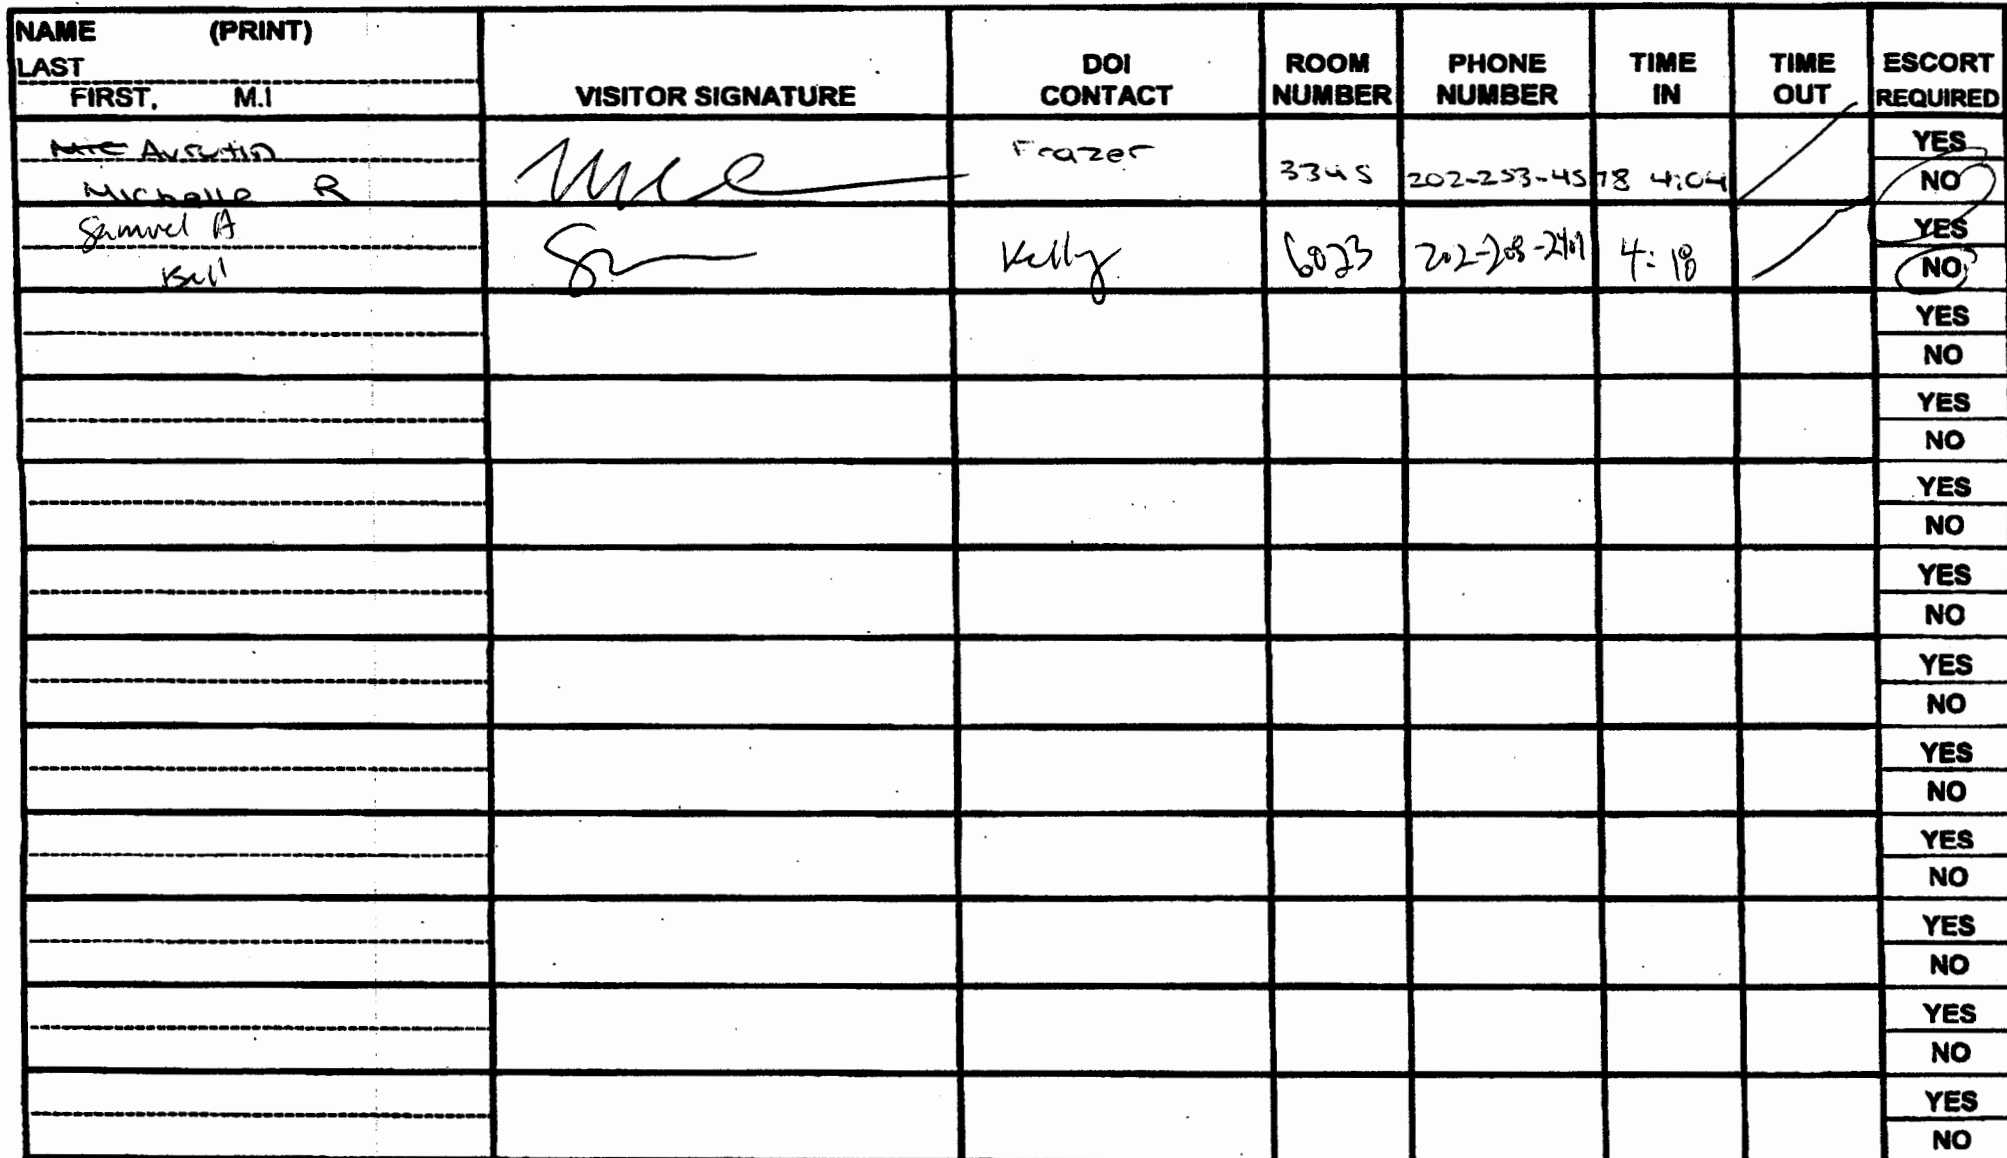 NAME (PRINT)
LAST
FIRST, M.I
VISITOR SIGNATURE
DOI CONTACT
ROOM NUMBER
PHONE NUMBER
TIME IN
TIME OUT
ESCORT REQUIRED
Avrutin
Michelle R
Frazer
3345
202-253-4578
4:04
YES
NO
Samuel A
Bell
Kelly
6023
4:18
YES
NO
YES
NO
YES
NO
YES
NO
YES
NO
YES
NO
YES
NO
YES
NO
YES
NO
YES
NO
YES
NO